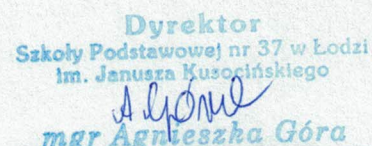 Dyrektor
Szkoły Podstawowej nr 37 w Łodzi
im. Janusza Kusocińskiego
A Góra
mgr Agnieszka Góra